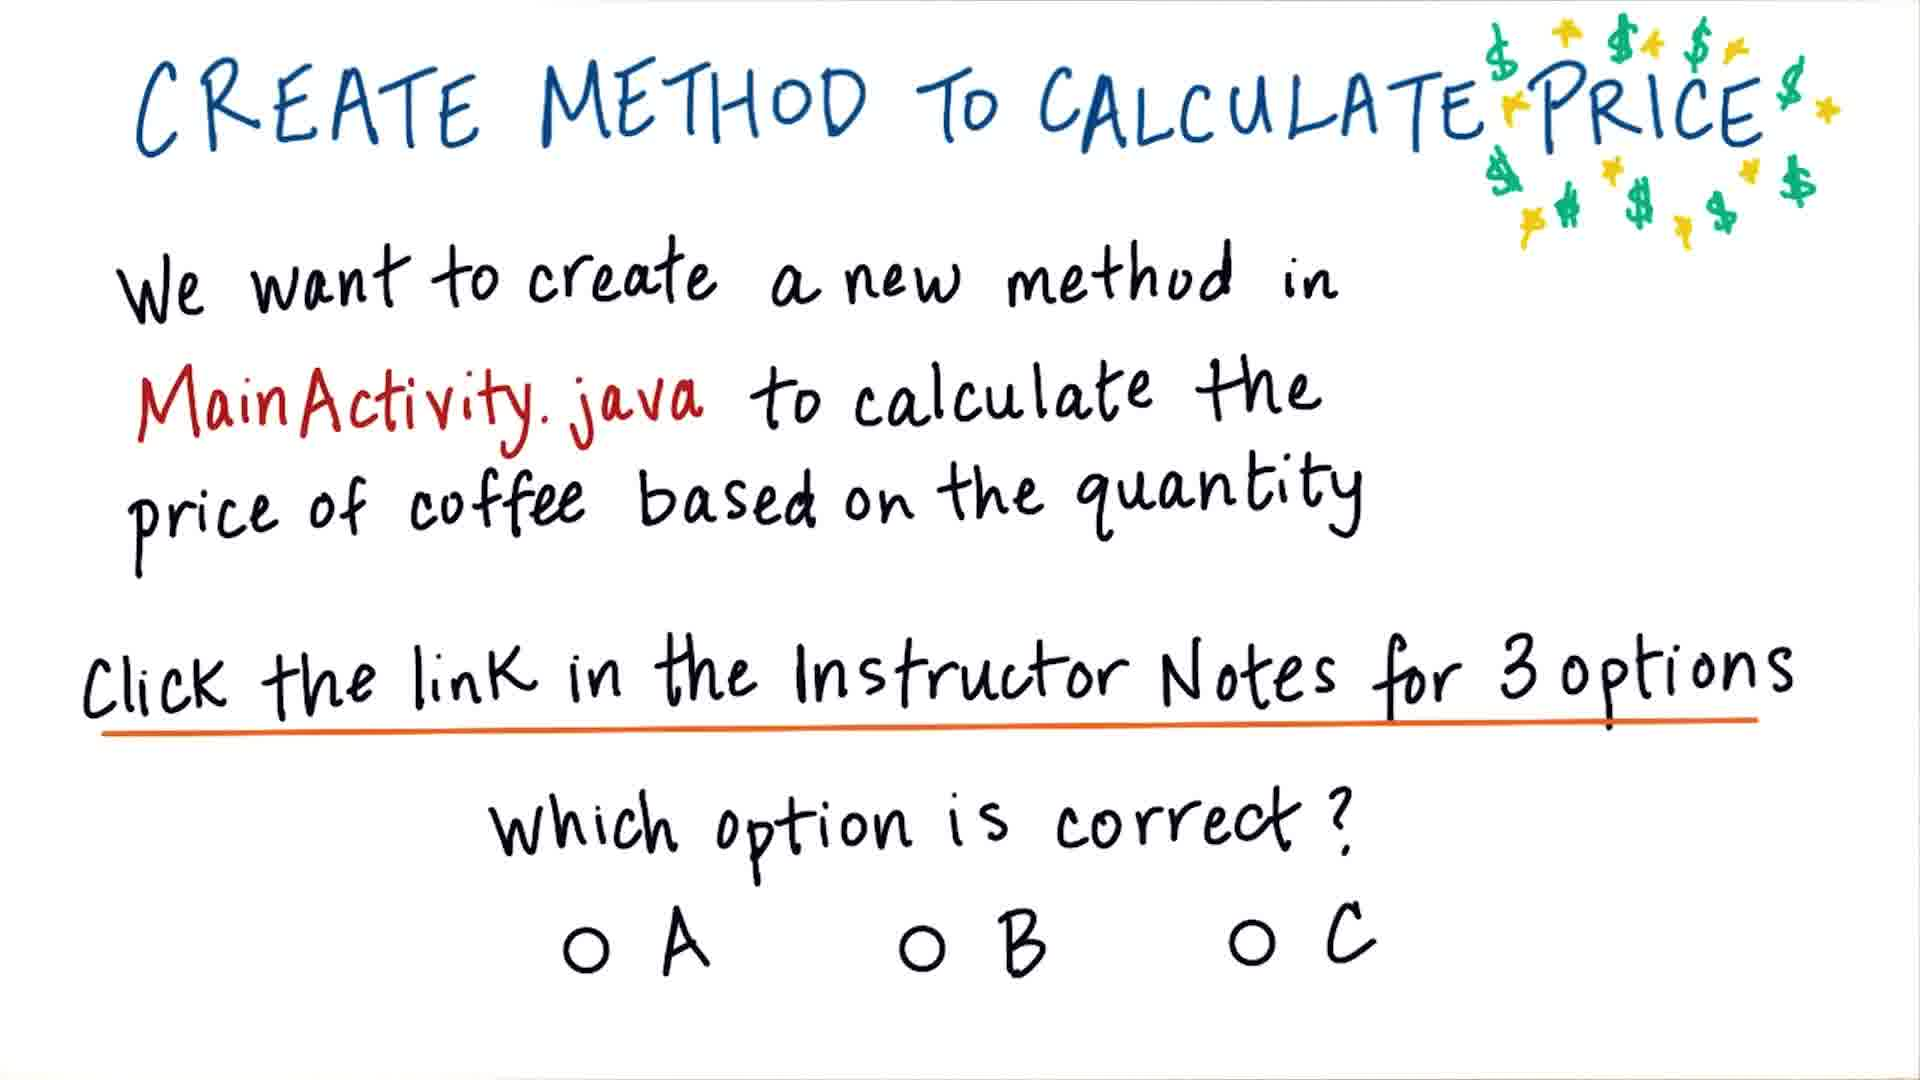 CREATE METHOD TO CALCULATE PRICE
We want to create a new method in
MainActivity.java to calculate the
price of coffee based on the quantity
Click the link in the Instructor Notes for 3 options
Which option is correct?
A B C